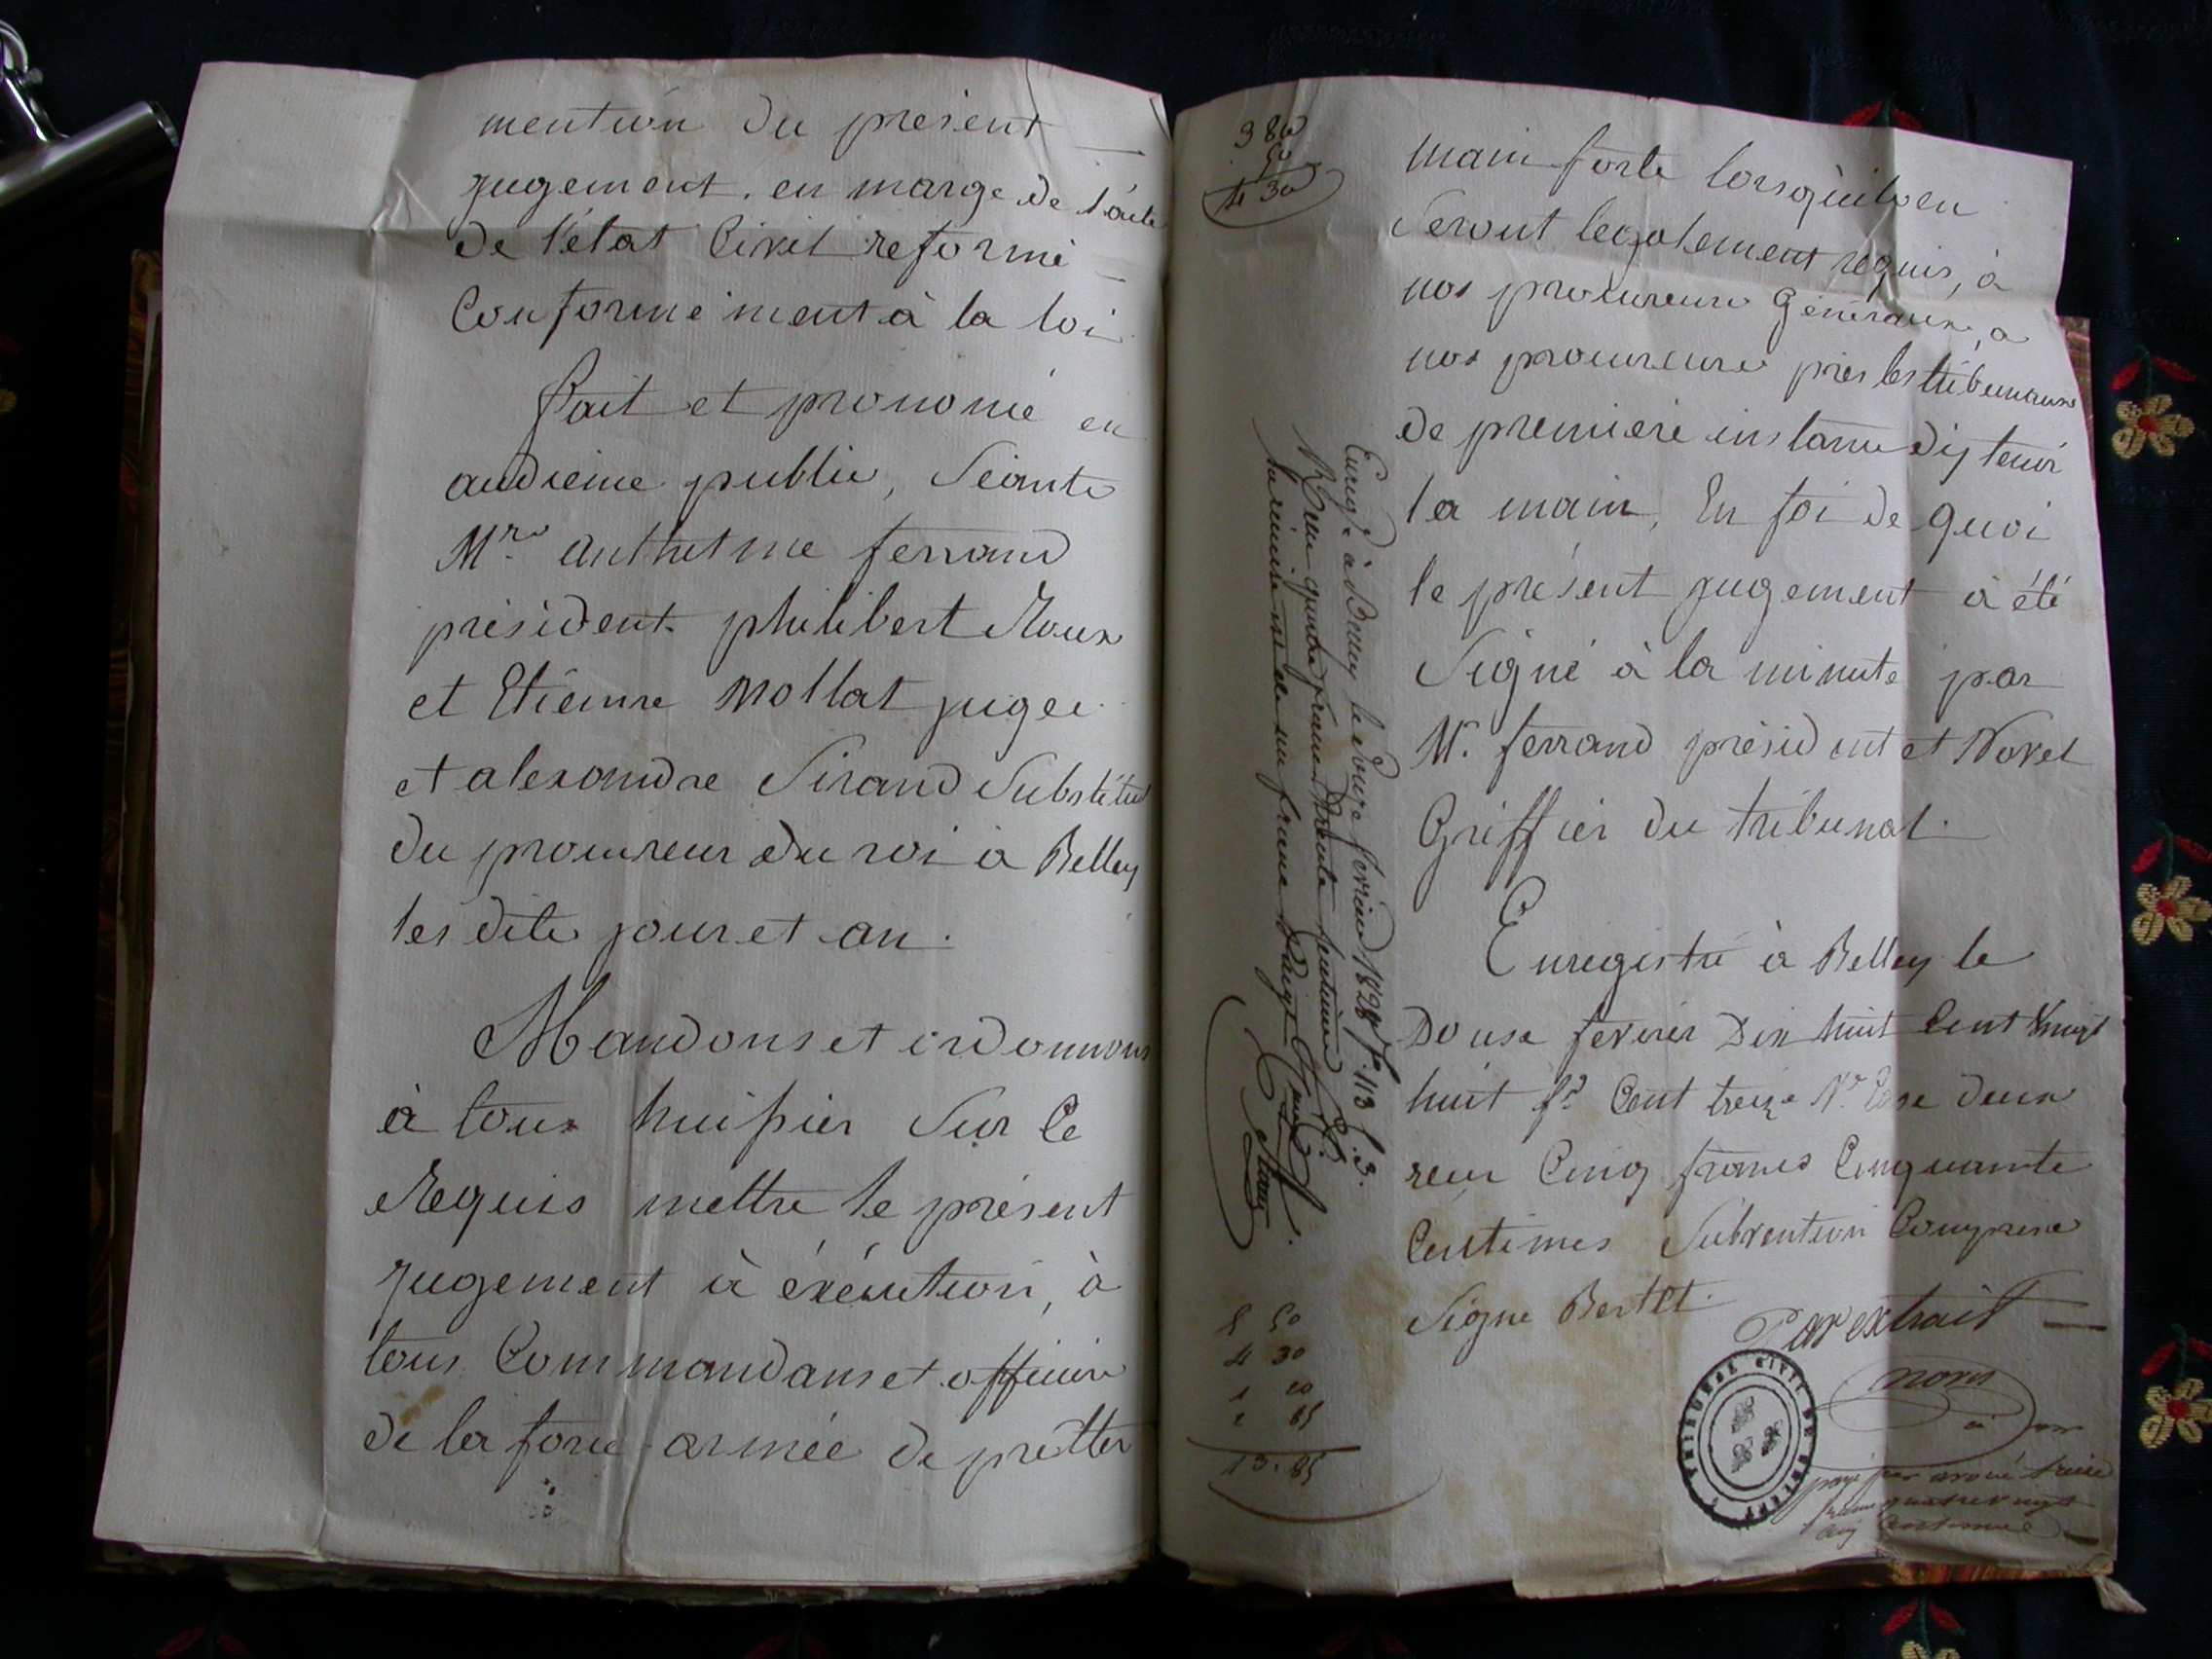 mention du présent
jugement, en marge de l'acte
de l'état Civil reformé
Conformément à la loi
fait et prononcé en
audience public, Séants
Mrs Anthelme ferrand
président philibert Roux
et Etienne Mollat juges
et alexandre Sirand Substitut
du procureur du roi à Belley
les dits jour et an.
Mandons et ordonnons
à tous huissier Sur Ce
Requis mettre le présent
jugement à éxécution, à
tous Commandans et officiers
de la force armée de prêtter
3 80
50
4 30
main forte lorsqu'ils en
Seront legalement requis, à
nos procureurs Généraux, a
nos procureurs près les tribunaux
de premiere instance d'y tenir
la main, En foi de quoi
le présent jugement à été
Signé à la minute par
Mr. ferrand président et Novel
Greffier du tribunal.
Enregistré à Belley le
Douse fevrier Dix huit Cent vingt
huit fo. Cent treize No. Case deux
recu Cinq francs Cinquante
Centimes Subvention Comprise
Signé Bertet.
Par extrait
novel
Enregé à Belley le douze fevrier 1828 fo. 113 C. 3.
Reçu quatre francs trente centimes
la remise est de un franc vingt Cent.
5 50
4 30
1 20
2 85
13. 85
TRIBUNAL CIVIL DE BELLEY
payé par avoué treize
francs quatre vingt
cinq centimes